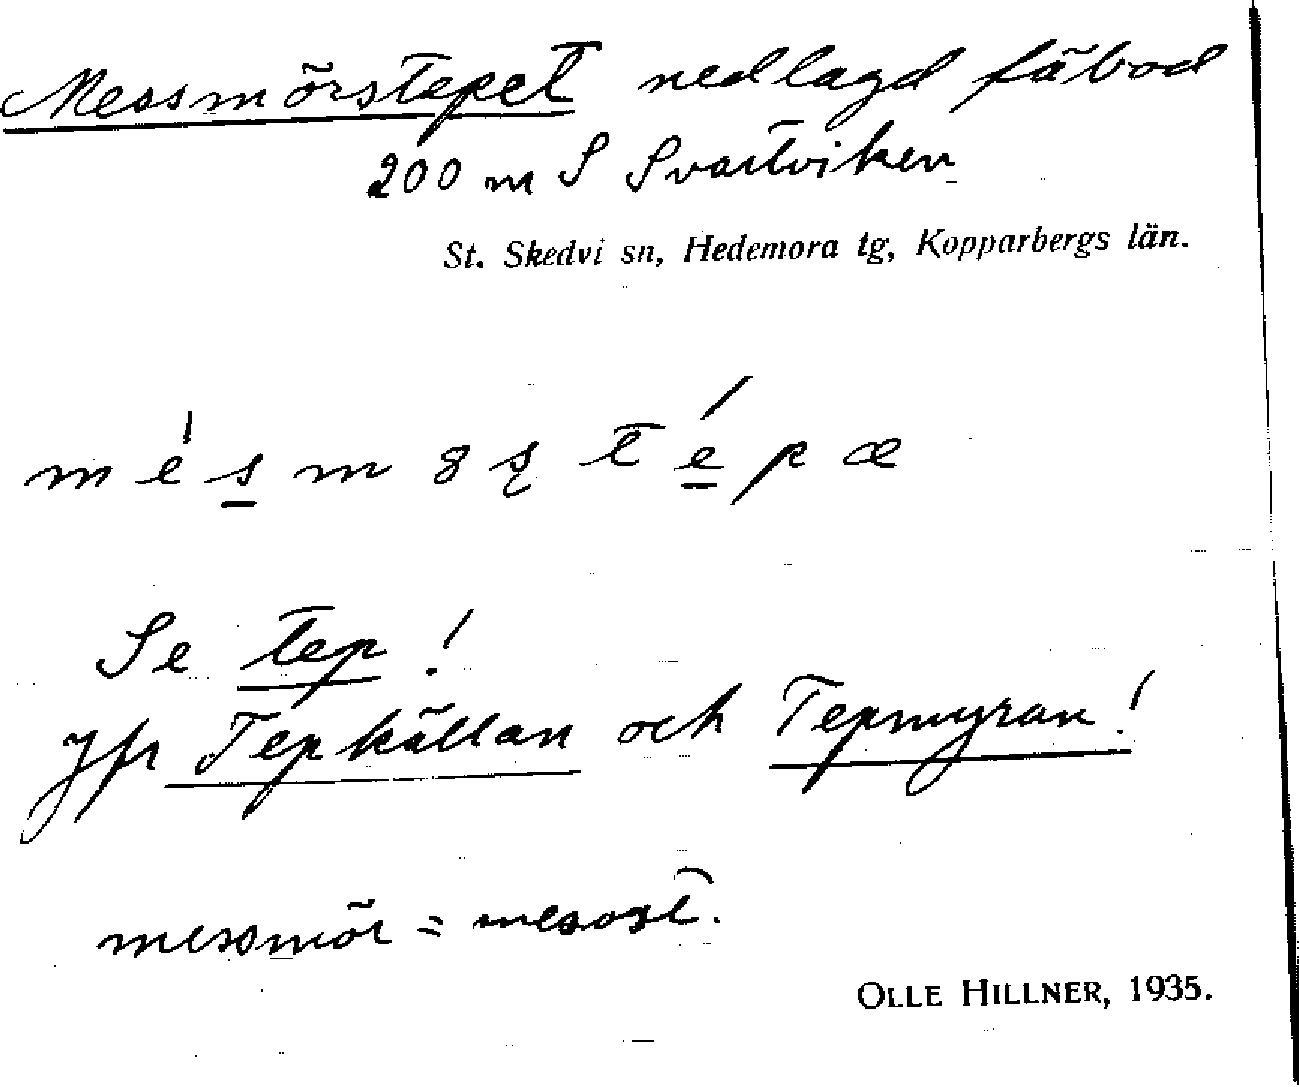 Messmörstepet nedlagd fäbod
200 m S Svartviken
St. Skedvi sn, Hedemora tg, Kopparbergs län.
Se tep!
Jfr Tepkällan och Tepmyran!
messmör = mesost.
OLLE HILLNER, 1935.